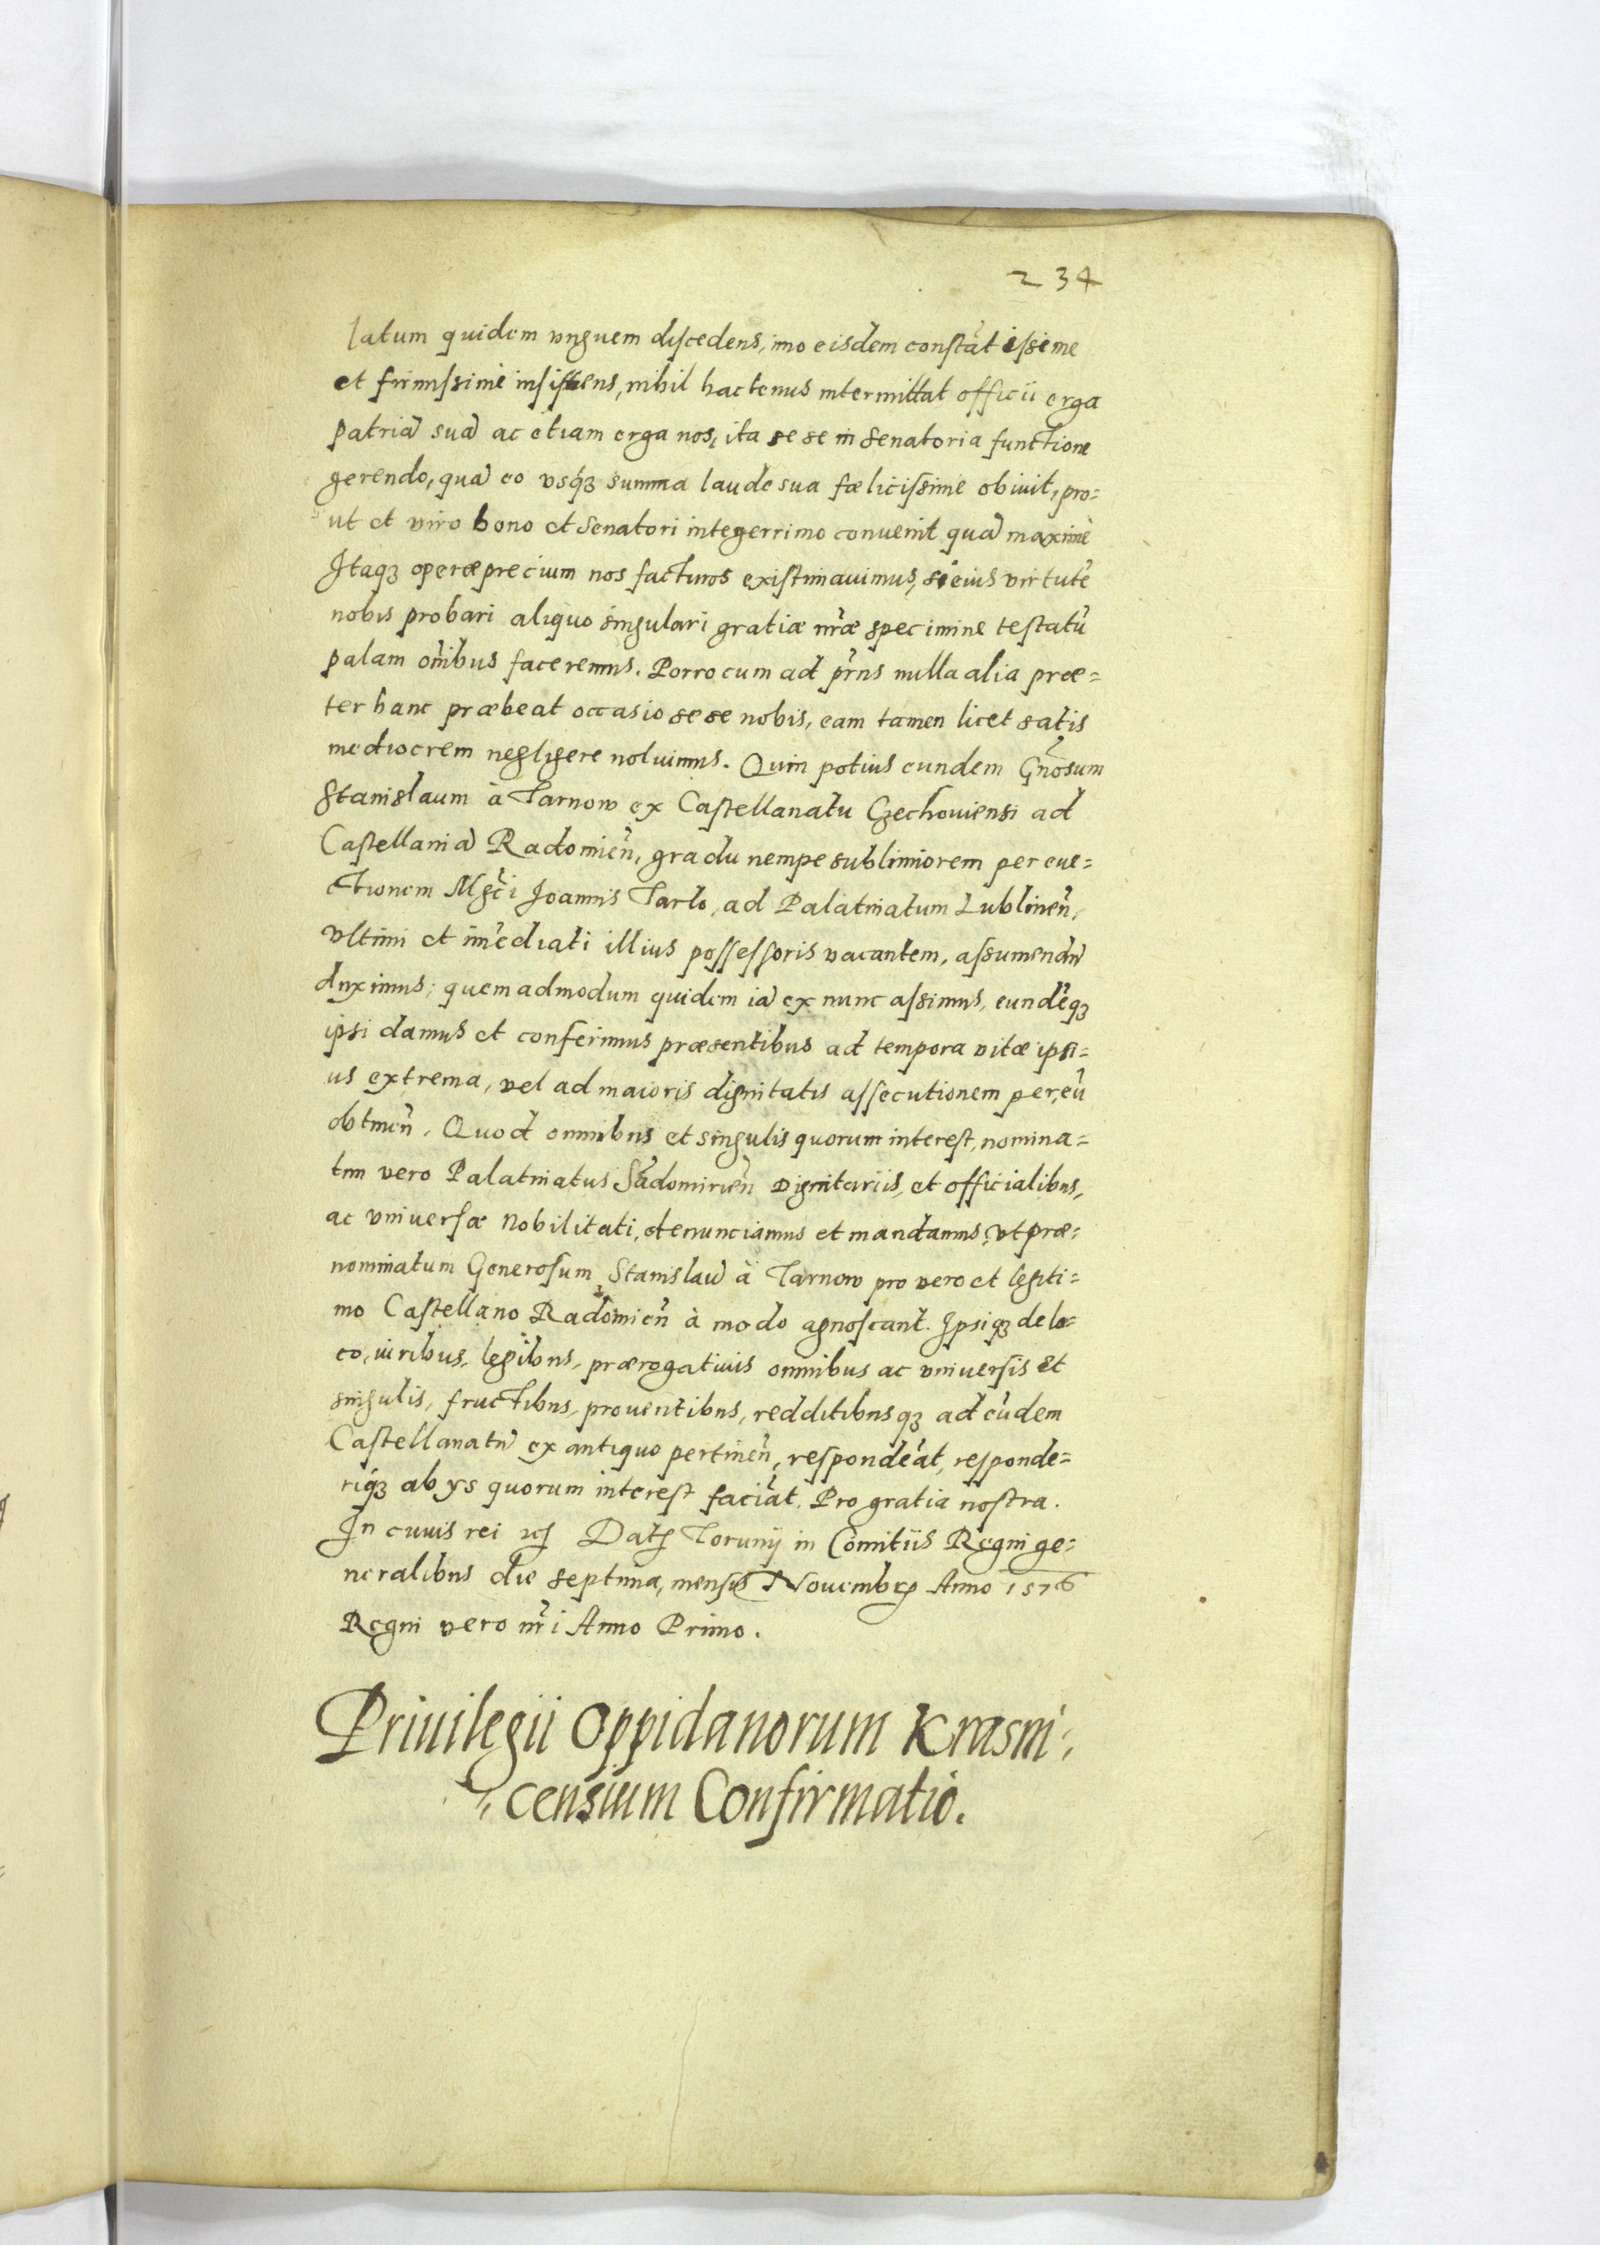 234
latum quidem vnguem discedens, imo eisdem constāt issime
et firmissimè insistens, nihil hactenus intermittat officii erga
patriā suā ac etiam erga nos, ita se se in senatoria functione
gerendo, quā eo vsq3 summa laude sua fœlicissime obiuit, pro=
ut et viro bono et Senatori integerrimo conuenit quā maximè
Itaq3 operæprecium nos facturos existimauimus, si eius virtutē
nobis probari aliquo singulari gratiæ nr̄æ specimine testatū
palam om̄ibus faceremus. Porro cum ad pr̄ns nulla alia præ=
ter hanc præbeat occasio sese nobis, eam tamen licet satis
mediocrem negligere noluimus. Quin potius eundem Gn̄osum
Stanislaum à Tarnow ex Castellanatu Czechouiensi ad
Castellaniā Radomien̄, gradu nempe sublimiorem per eue=
ctionem Mgc̄i Joannis Tarlo, ad Palatinatum Lublinen̄,
vltimi et im̄ediati illius possessoris vacantem, assumendū
duximus; quemadmodum quidem iā ex nunc assimus, eundēq3
ipsi damus et conferimus præsentibus ad tempora vitæ ipsi=
us extrema, vel ad maioris dignitatis assecutionem per eū
obtinen̄. Quod omnibus et singulis quorum interest, nomina=
tim vero Palatinatus Sādomirien̄ Dignitariis, et officialibus,
ac vniuersæ Nobilitati, denunciamus et mandamus, vt præ=
nominatum Generosum Stanislaū à Tarnow pro vero et legiti=
mo Castellano Radomien̄ à modo agnoscant. Ipsiq3 de lo=
co, iuribus, legibus, prærogatiuis omnibus ac vniuersis et
singulis, fructibus, prouentibus, redditibusq3 ad eūdem
Castellanatū ex antiquo pertinen̄, respondeāt, responde=
riq3 ab ys quorum interest faciāt. Pro gratia nostra.
In cuius rei Dat Torunij in Comitiis Regni ge=
neralibus die septima, mensis Nouembr Anno 1576
Regni vero nr̄i Anno Primo.
Priuilegii Oppidanorum Krasni=
=censium Confirmatio.